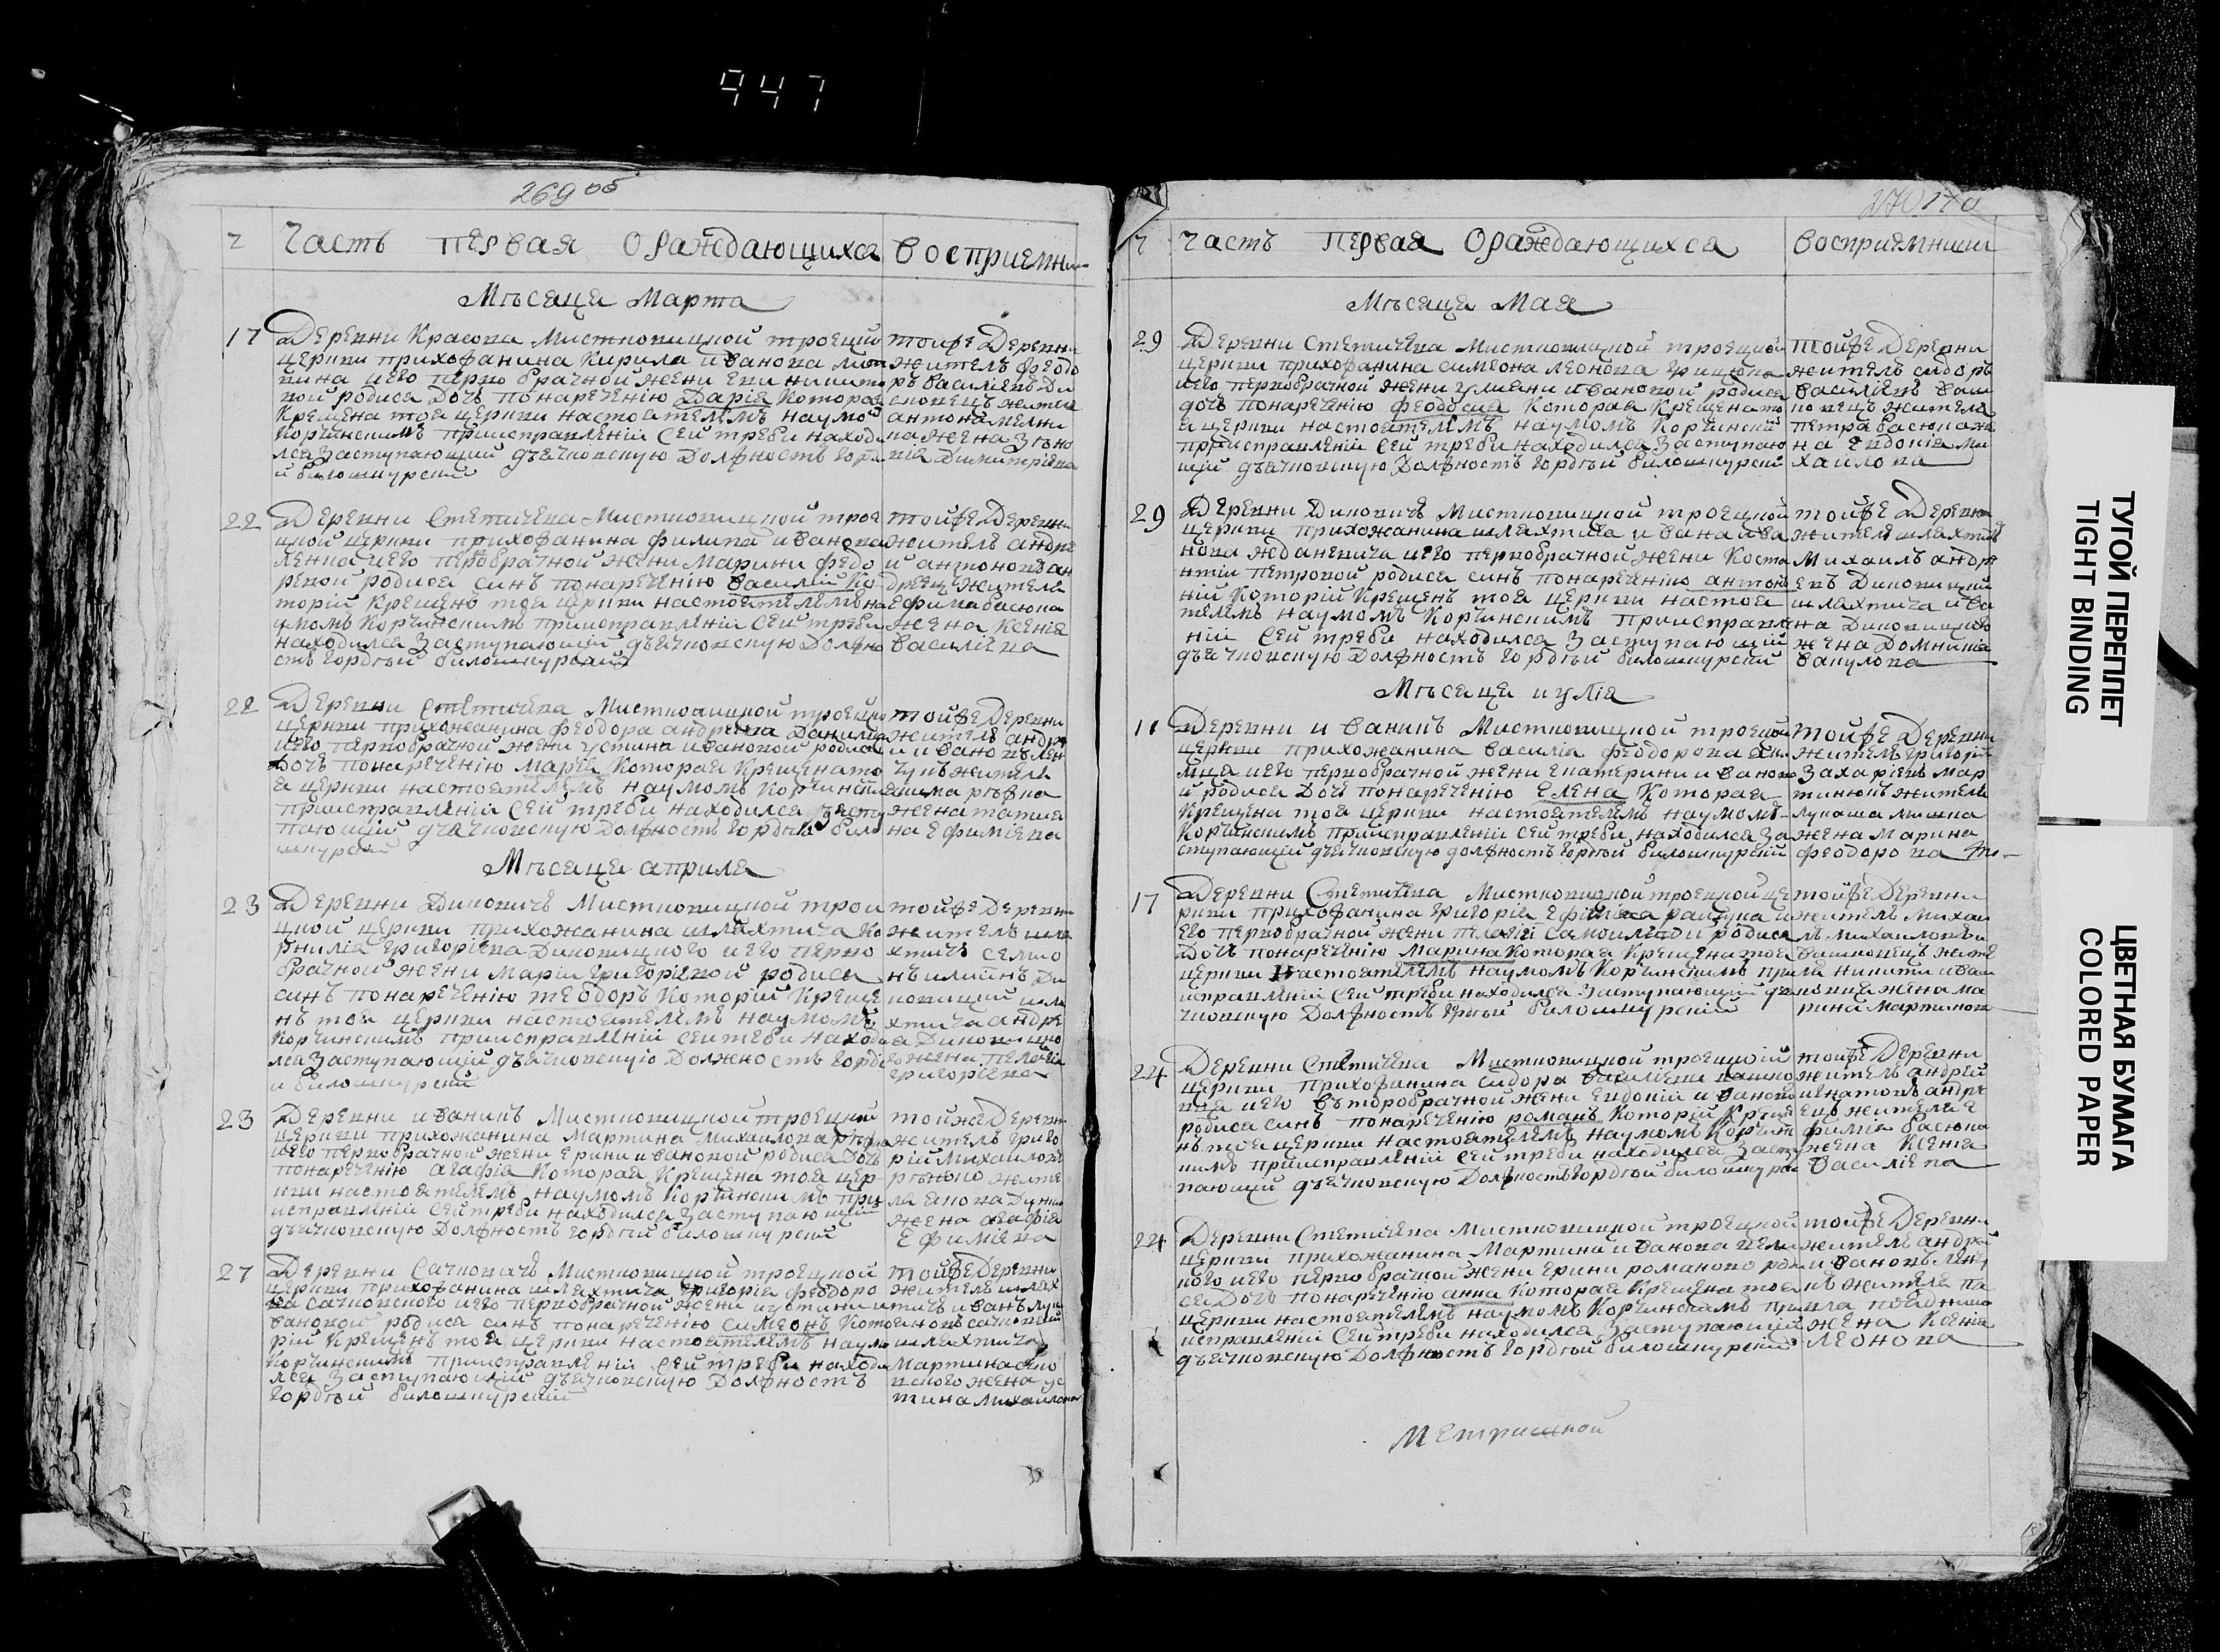 947
269 об
Часть первая ораждающихся восприемни
Мѣсяца Марта
17 Деревни Красова Мистковицкой троецкой
церкви прихожанина Кирила иванова
его перво брачной жени
кой родися дочъ понаречению Дария Которая
Крещена тоя церкви настоятелемъ наумом
Корчинскимъ приисправлении сей треби находи
лся заступающий дьячковскую Должность горд
й билошкурский
тойже Деревни
житель феодо
ръ василиевъ
житела
антона
жена
Димитриева
22 Деревни Стетичева Мистковицкой трое
цкой церкви прихожанина филипа иванова
его первобрачной жени Марини федо
ровой родися синъ понаречению василий Ко
торий Крещенъ тоя церкви настоятелемъ на
умомъ Корчинскимъ приисправлении сей треби
находился заступающий дьячковскую Должно
сть гордѣй билошкурский
тойже Деревни
житель андре
й антоновъ ан
дреец жителя
Ефима басюка
жена Ксения
василиева
22 Деревни Стетичева Мистковицкой троецко
церкви прихожанина феодора андреева
его первобрачной жени устини ивановой родися
Дочъ понаречению Мария Которая Крещена то
я церкви настоятелемъ наумомъ Корчински
приисправлении сей треби находился засту
пающий дьячковскую Должность гордѣй бело
шкурский
тойже Деревни
житель андре
й ивановъ
жителя
жена татия
на Ефимиева
Мѣсяца априля
23 Деревни Диковичъ Мистковицкой трои
цкой церкви прихожанина шляхтича Ко
рнилия григориева Диковицкого его перво
брачной жени Марии григориевой родися
синъ понаречению теодоръ Которий Креще
нъ тоя церкви настоятелемъ наумомъ
Корчинскимъ приисправлении сей треби находи
лся заступающий дьячковскую Должность горд
й билошкурский
тойже Деревни
житель шля
хтичъ семио
нъ илиинъ Ди
ковицкий шля
хтича андре
я Диковицко
го жена пелагия
григориева
23 Деревни иваникъ Мистковицкой троецкой
церкви прихожанина Мартина Михаилова
его первобрачной жени Ерини ивановой родися Дочъ
понаречению агафия Которая Крещена тоя цер
кви настоятелемъ наумомъ Корчинскимъ при
исправлении сей треби находился заступающий
дьячковскую Должность гордѣй билошкурский
тойже Деревни
житель григо
рий Михаилов
жена агафия
Ефимиева
27 Деревни Сачковичъ Мистковицкой троецкой
церкви прихожанина шляхтича григория феодоро
ва сачковского его первобрачной жени иустини и
вановой родися синъ понаречению симеонъ Кото
рий Крещенъ тоя церкви настоятелемъ наумо
Корчинскимъ приисправлении сей треби находи
лся заступающий дьячковскую Должность
гордѣй билошкурский
тойже Деревни
житель шлях
тичъ иванъ
сачковский
шляхтича
Мартина
жена ус
тина Михаилова
270
часть первая ораждающихся восприемники
Мѣсяца Мая
29 Деревни Стетичева Мистковицкой троецкой
церкви прихожанина симеона леонова
его первобрачной жени улияни ивановой родися
дочъ понаречению феодосия Которая Крещена то
я церкви настоятелемъ наумомъ Корчински
приисправлении сей треби находился заступаю
щий дьячковскую Должность гордѣй билошкурский
тойже Деревни
житель сидоръ
василиевъ
жителя
петра басюка же
на Евдокия Ми
хаилова
29 Деревни Диковичъ Мистковицкой троецкой
церкви прихожанина шляхтича ивана ива
нова Жданевича его первобрачной жени Коста
нтии петровой родися синъ понаречению антон
ий Которий Крещенъ тоя церкви настоя
телемъ наумомъ Корчинскимъ приисправле
нии сей треби находился заступающий
дьячковскую Должность гордѣй билошкурский
тойже Деревни
житель шляхтич
Михаилъ андре
евъ Диковицкий
шляхтича ива
на Диковицкого
жена Домникия
вакулова
Мѣсяца иулия
11 Деревни иваникъ Мистковицкой троецкой
церкви прихожанина василия феодорова
его первобрачной жени Екатерини иваново
й родися Дочъ понаречению Елена Которая
Крещена тоя церкви настоятелемъ наумомъ
Корчинскимъ приисправлении сей треби находился за
ступающий дьячковскую должность гордѣй билошкурский
тойже Деревни
житель григорий
Захариевъ мар
тинюкъ жителя
Лукаша
жена Марина
феодорова
17 Деревни Стетичева Мистковицкой троецкой це
ркви прихожанина григория
его первобрачной жени пелагии самоиловой родися
Дочъ понаречению Марина Которая Крещена тоя
церкви Настоятелемъ наумомъ Корчинскимъ при
исправлении сей треби находился заступающий дя
чковскую Должность гордѣй билошкурский
тойже Деревни
житель Михаи
лъ Михаиловъ
жите
ля никити
жена ма
рина мартинов
24 Деревни Стетичева Мистковицкой троецкой
церкви прихожанина сидора василиева
его второбрачной жени Евдокии иваново
родися синъ понаречению романъ Которий Креще
нъ тоя церкви настоятелемъ наумомъ Корчин
скимъ приисправлении сей треби находился засту
пающий дьячковскую Должность гордѣй билошкурс
тойже Деревни
житель андрей
андре
ецъ жителя Е
фимия басюка
жена Ксения
василиева
24 Деревни Стетичева Мистковицкой троецкой
церкви прихожанина Мартина иванова
его первобрачной жени Ерини романово роди
ся Дочъ понаречению анна Которая Крещена тоя
церкви настоятелемъ наумомъ Корчинскимъ при
исправлении сей треби находился заступающий
дьячковскую Должность гордѣй билошкурский
тойже Деревни
житель андрей
ивановъ
жителя
жена Ксения
Леонова
Метрической
ТУГОЙ ПЕРЕПЛЕТ
TIGHT BINDING
ЦВЕТНАЯ БУМАГА
COLORED PAPER